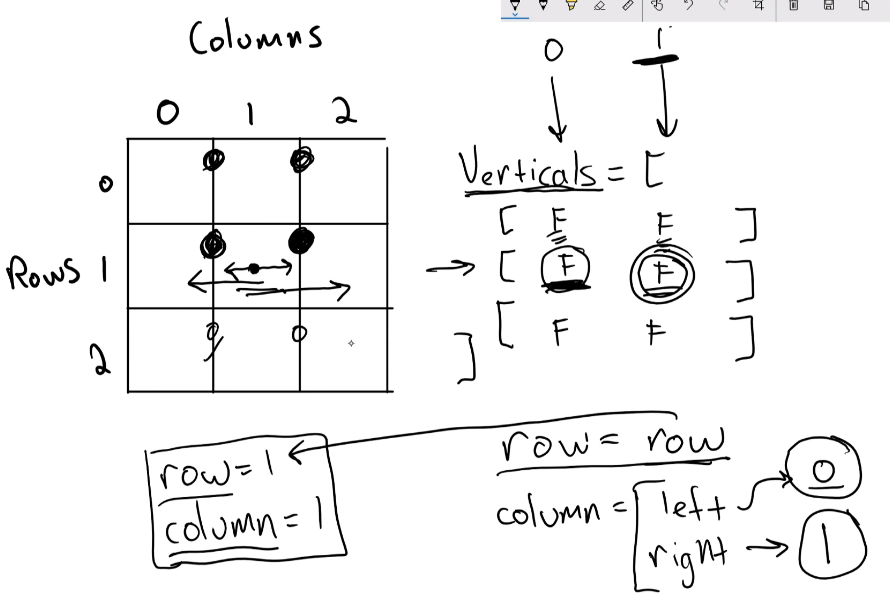 Columns
0 1
0 1 2
0
Verticals = [
[ F F ]
Rows 1 [ F F ]
2 [ F F ]
]
row = 1
column = 1
row = row
column = [ left 0
right 1